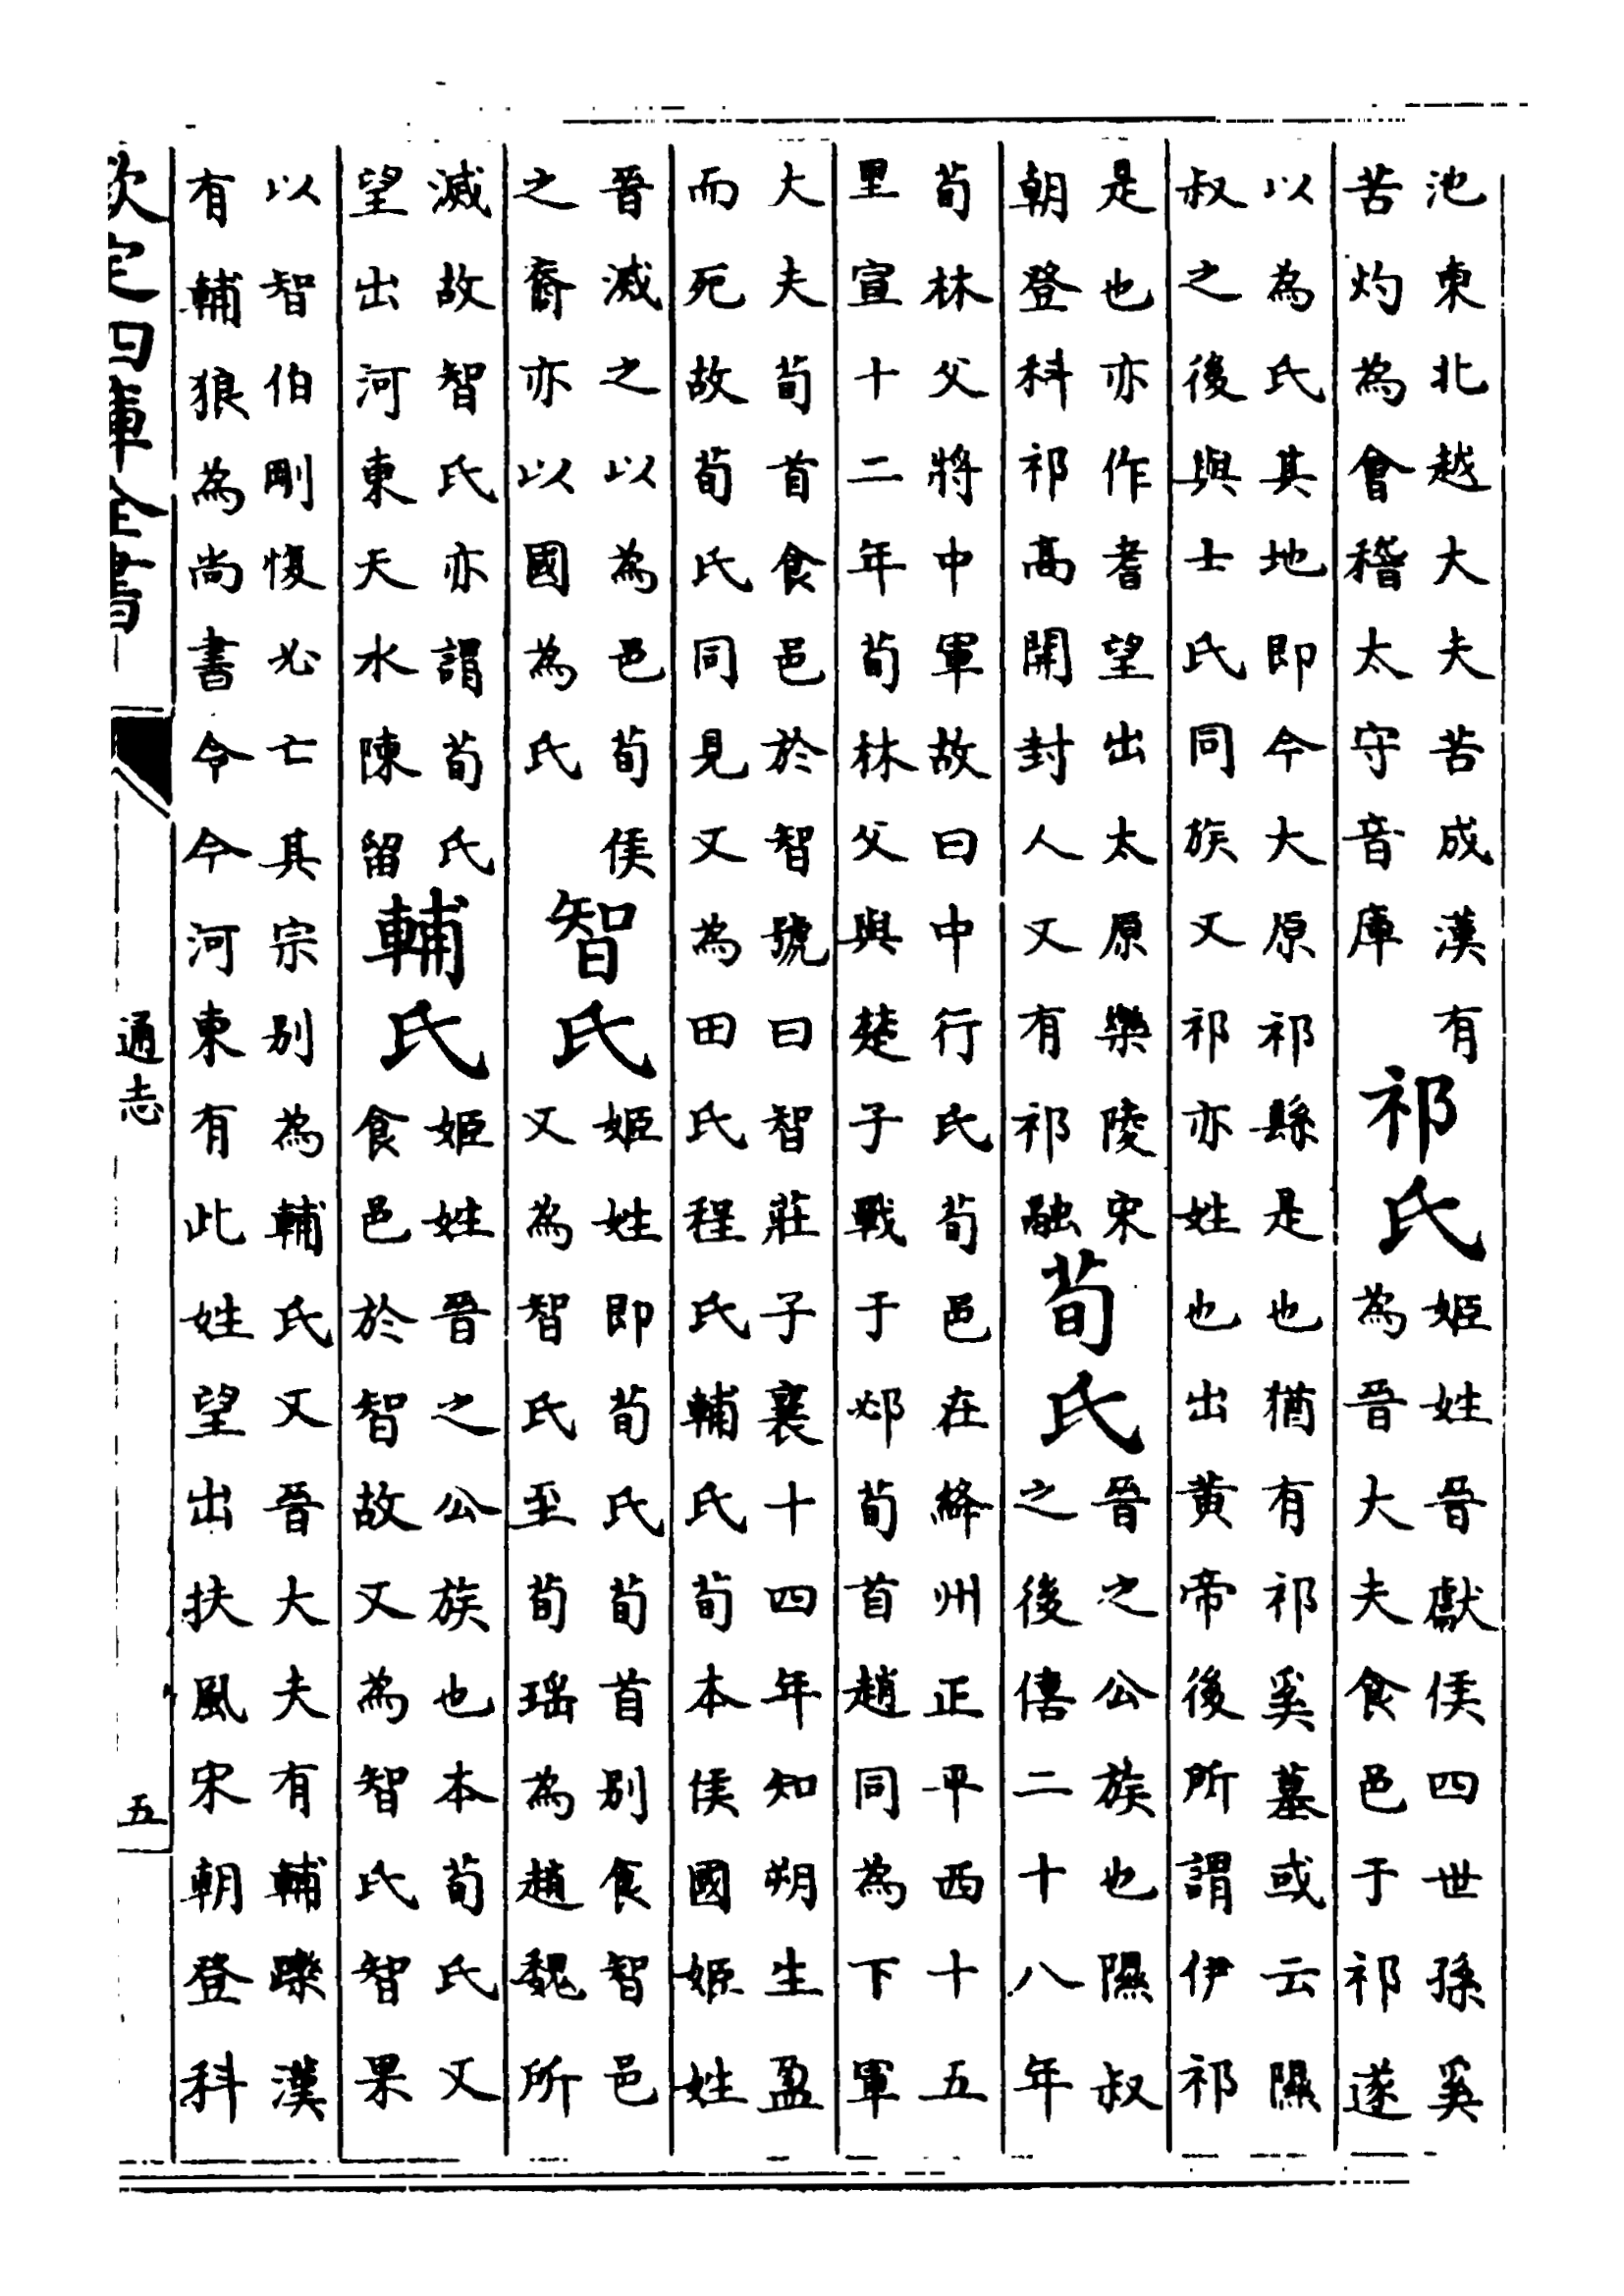 池東北越大夫苦成漢有
苦灼為會稽太守音庫
祁氏
姬姓晉獻侯四世孫奚
為晉大夫食邑于祁遂
以為氏其地即今大原祁縣是也猶有祁奚墓或云隰
叔之後與士氏同族又祁亦姓也出黃帝後所謂伊祁
是也亦作耆望出太原樂陵宋
朝登科祁髙開封人又有祁融
荀氏
晉之公族也隰叔
之後僖二十八年
荀林父將中軍故曰中行氏荀邑在絳州正平西十五
里宣十二年荀林父與楚子戰于邲荀首趙同為下軍
大夫荀首食邑於智號曰智莊子襄十四年知朔生盈
而死故荀氏同見又為田氏程氏輔氏荀本侯國姬姓
晉滅之以為邑荀侯
之裔亦以國為氏
智氏
姬姓即荀氏荀首别食智邑
又為智氏至荀瑶為趙魏所
滅故智氏亦謂荀氏
望出河東天水陳留
輔氏
姬姓晉之公族也本荀氏又
食邑於智故又為智氏智果
以智伯剛愎必亡其宗别為輔氏又晉大夫有輔躒漢
有輔狼為尚書令今河東有此姓望出扶風宋朝登科
欽定四庫全書
通志
五